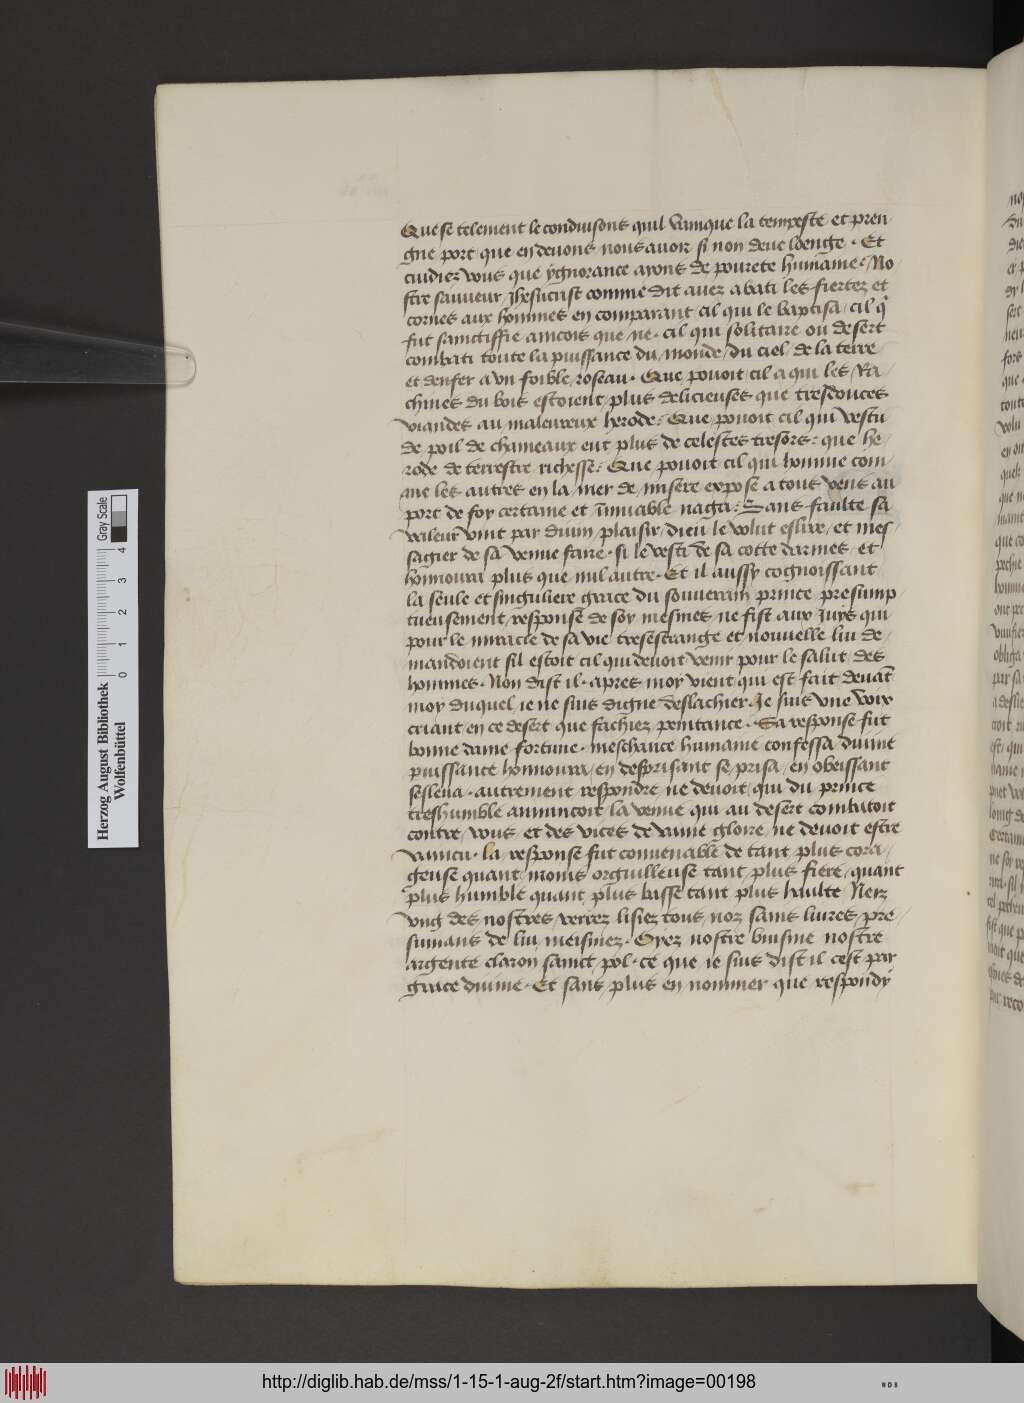 Que se telement le conduisons quil vainque la tempeste et pren
gne port que en devons nous avoir si non deue loenge · Et
cuidiez vous que ygnorance ayons de povrete humaine · No
stre sauveur Jhesucrist comme dit avez abati les fiertez et
cornes aux hommes en comparant cil qui le baptisa cil q̃
fut sanctiffie aincois que ne · cil qui solitaire ou desert
combati toute la puissance du monde du ciel de la terre
et denfer a un foible roseau · Que povoit cil a qui les Ra
chines du bois estoient plus delicieuses que tresdouces
viandes au maleureux herode · Que povoit cil qui vestu
de poil de chameaux eut plus de celestes tresors · que he
rode de terrestre richesse · Que povoit cil qui homme com
me les autres en la mer de misere expose a tous vens au
port de foy certaine et naga · Sans faulte sa
valeur vint par divin plaisir dieu le volut eslire et mes
sagier de sa venue faire · si le vesti de sa cotte darmes et
honnoura plus que nul autre · Et il aussy cognoissant
la seule et singuliere grace du souverain prince presump
tueusement response de soy mesmes ne fist aux Juys qui
pour le miracle de sa vie tresestrange et nouvelle luy de
mandoient sil estoit cil qui devoit venir pour le salut des
hommes · Non dist il · apres moy vient qui est fait devāt
moy duquel ie ne suis digne deslachier Je suis une voix
criant en ce desert que fachiez penitance · Sa response fut
bonne dame fortune · meschance humaine confessa divine
puissance honnoura en desprisant se prisa en obeissant
sesleva · autrement respondre ne devoit qui du prince
treshumble annincoit la venue qui au desert combatoit
contre vous et des vices de vaine gloire ne devoit estre
vaincu · la response fut convenable de tant plus cora
geuse quant moins orguilleuse tant plus fiere quant
plus humble quant plus basse tant plus haulte Nez
ung des nostres verrez lisiez tous noz sains livres pre
sumans de luy meismez · Oyez nostre buisine nostre
argente claron sainct pol · ce que ie suis dist il cest par
grace divine · Et sans plus en nommer que respondy
Herzog August Bibliothek
Wolfenbüttel
0 1 2 3 4
Gray Scale
http://diglib.hab.de/mss/1-15-1-aug-2f/start.htm?image=00198